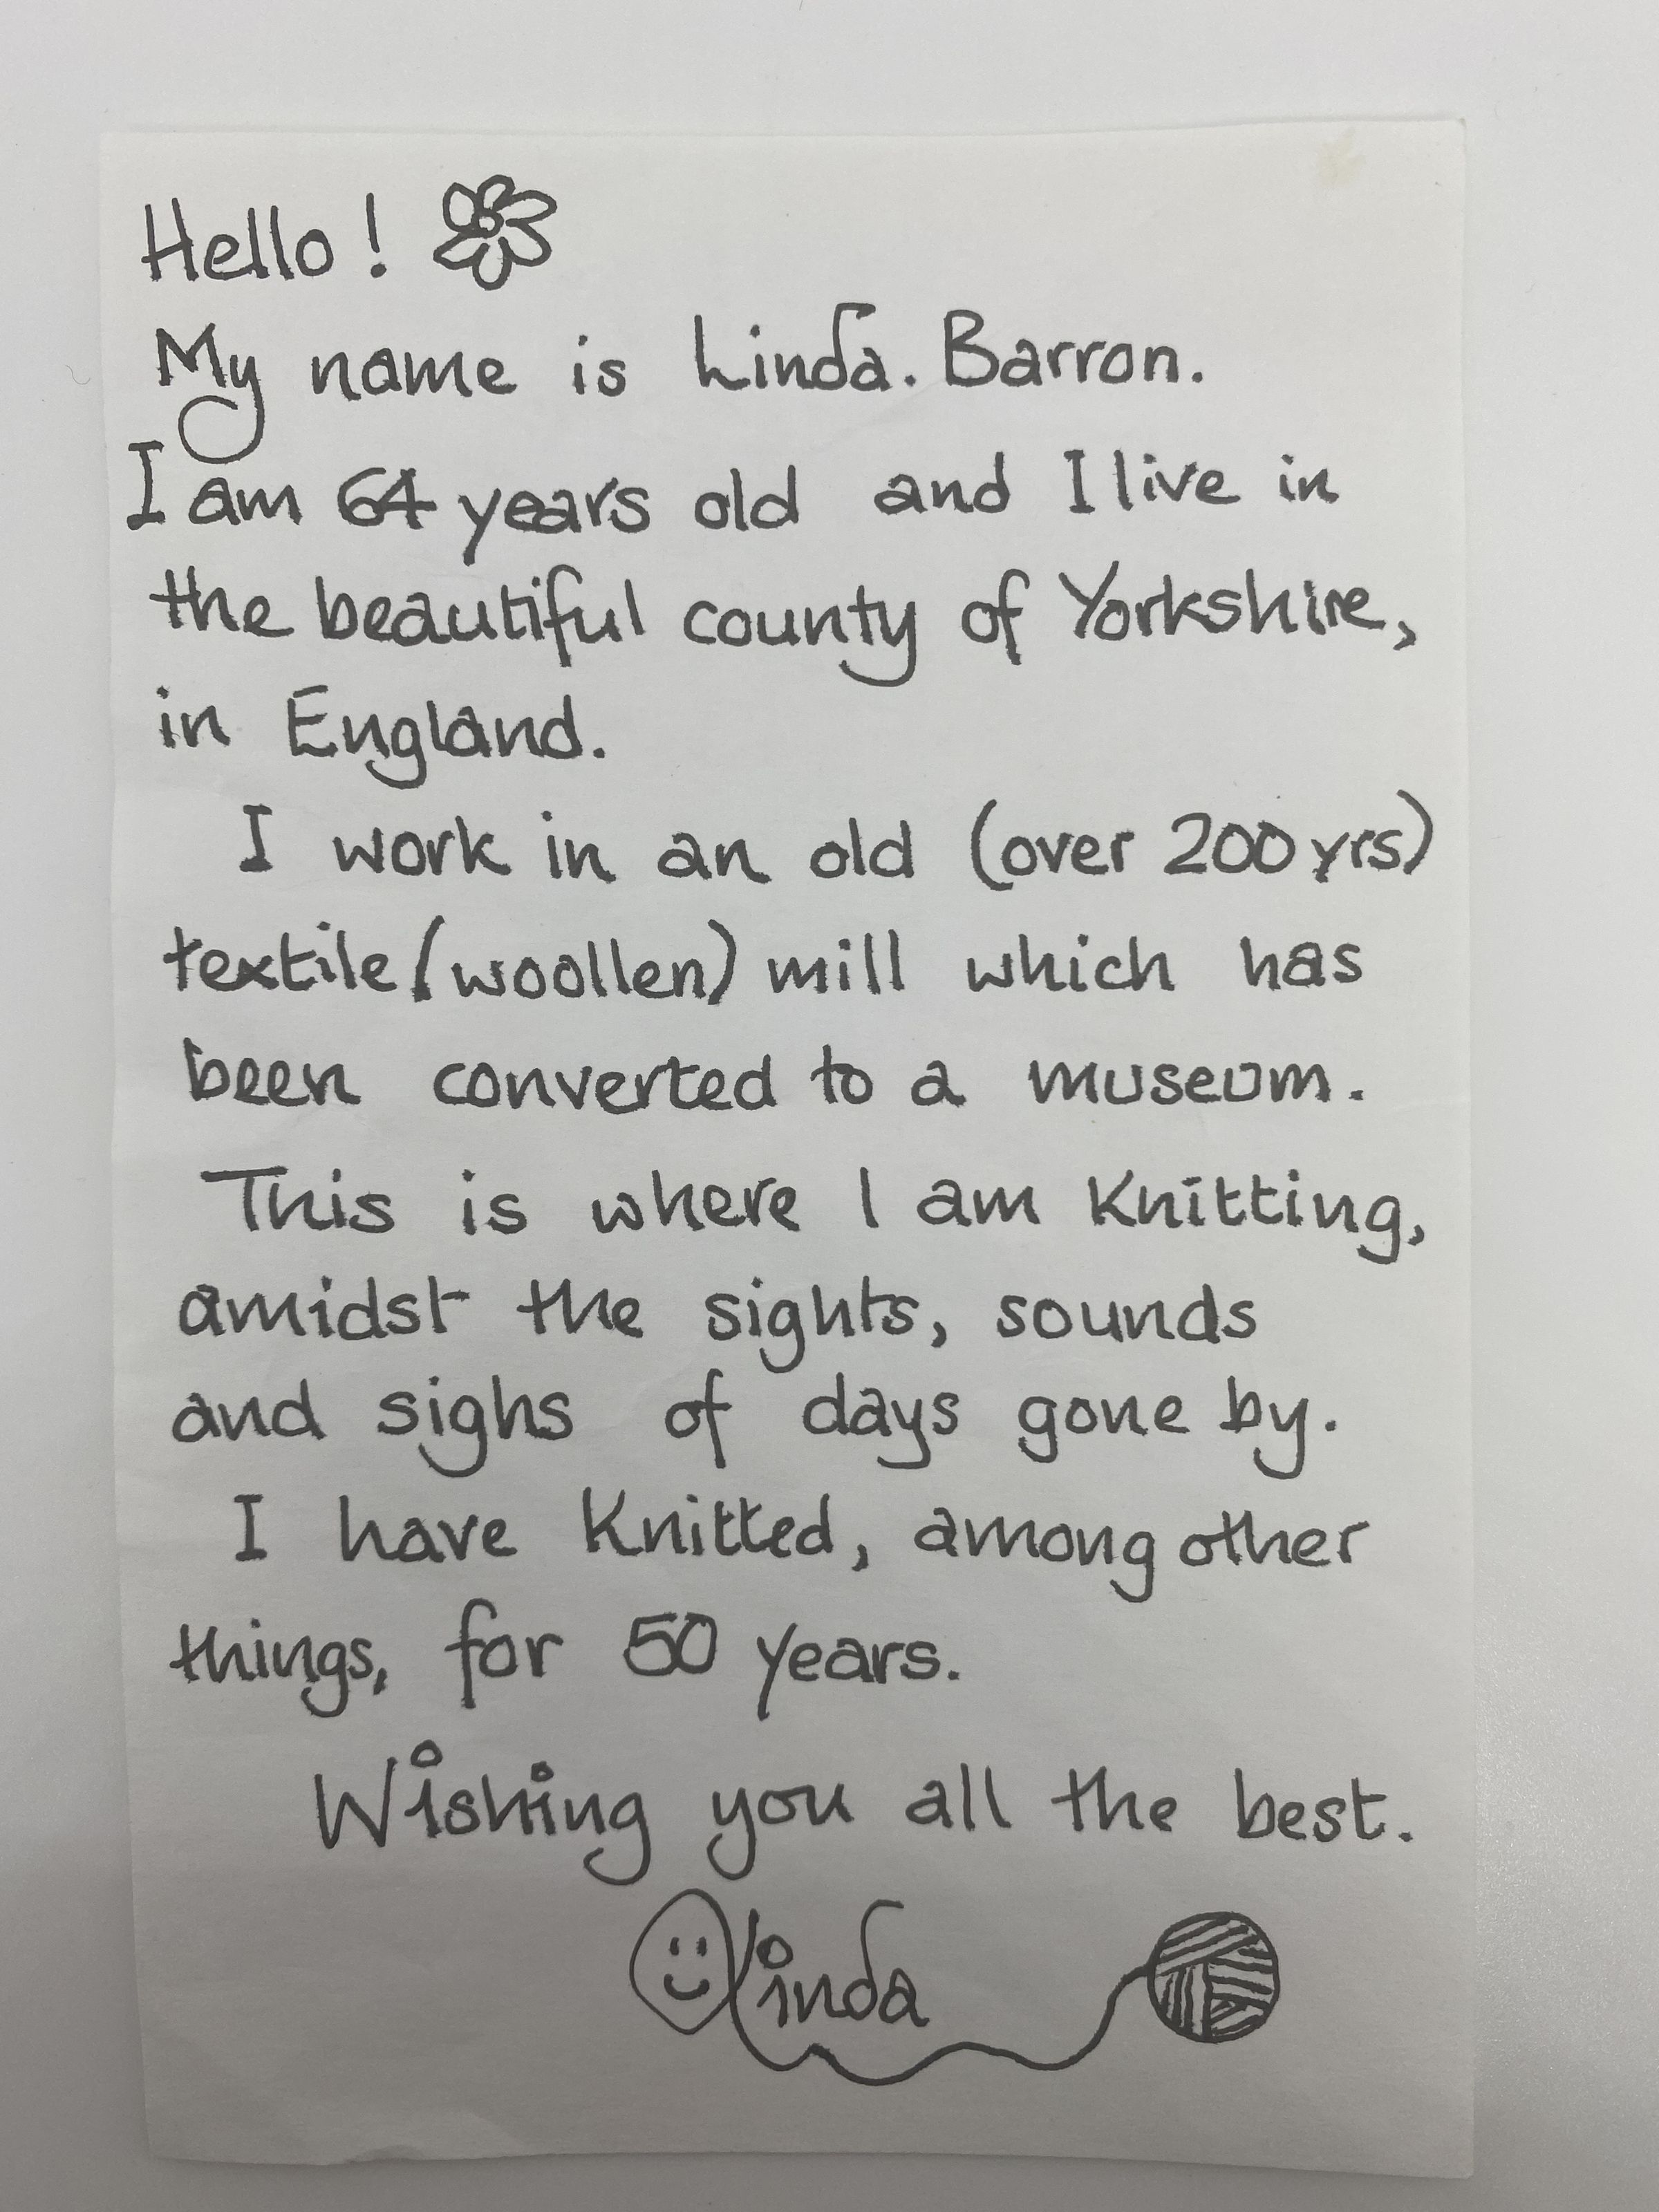 Hello!
My name is Linda. Barron.
I am 64 years old and I live in
the beautiful county of Yorkshire,
in England.
I work in an old (over 200 yrs)
textile (woollen) mill which has
been converted to a museum.
This is where I am Knitting,
amidst the sights, sounds
and sighs of days gone by.
I have Knitted, among other
things, for 50 years.
Wishing you all the best.
Linda